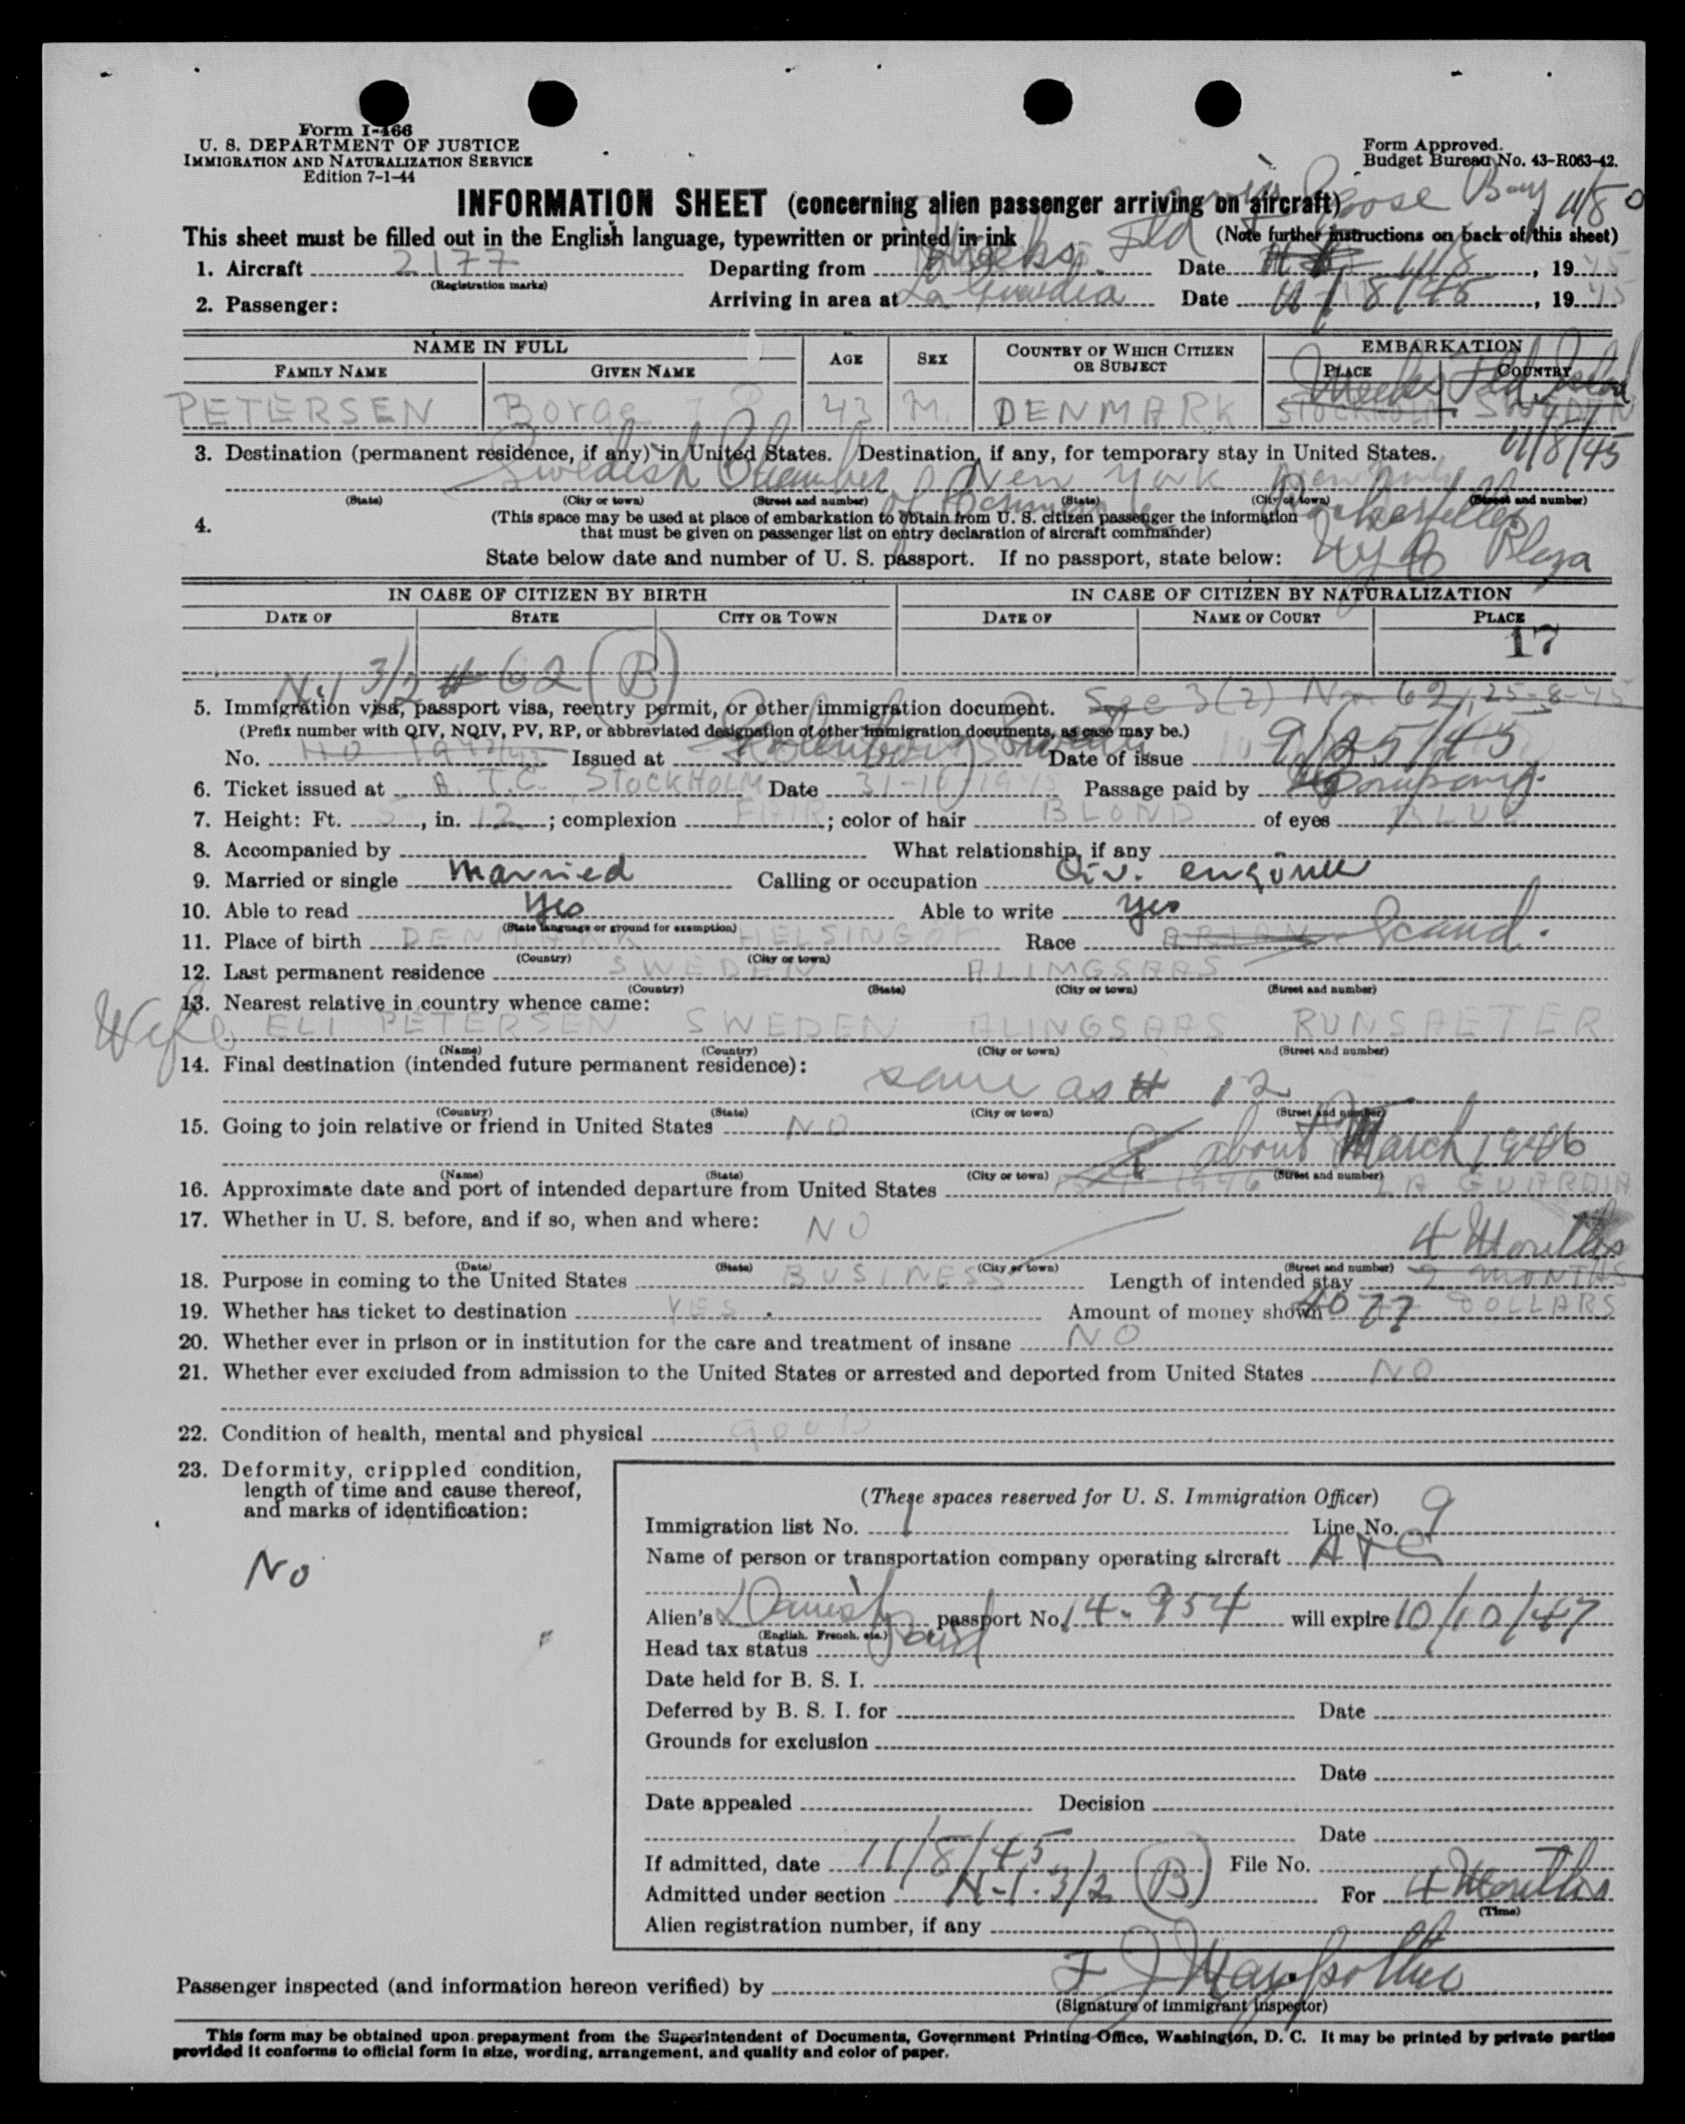 Form I-466
U. S. DEPARTMENT OF JUSTICE
IMMIGRATION AND NATURALIZATION SERVICE
Edition 7-1-44
Form Approved.
Budget Bureau No. 43-R063-42.
Goose Bay 11/8
INFORMATION SHEET (concerning alien passenger arriving on aircraft)
This sheet must be filled out in the English language, typewritten or printed in ink (Note further instructions on back of this sheet)
1. Aircraft 2177 Departing from Meeks Fld Date 11/8, 1945
(Registration marks)
2. Passenger: Arriving in area at La Guardia Date 11/8/45, 1945
NAME IN FULL AGE SEX COUNTRY OF WHICH CITIZEN OR SUBJECT EMBARKATION
FAMILY NAME GIVEN NAME PLACE COUNTRY
Meeks Fld
PETERSEN Borge 43 M. DENMARK STOCKHOLM SWEDEN
11/8/45
3. Destination (permanent residence, if any) in United States. Destination, if any, for temporary stay in United States.
Swedish Chamber of Commerce New York
(State) (City or town) (Street and number) (State) (City or town) (Street and number)
4. (This space may be used at place of embarkation to obtain from U. S. citizen passenger the information
that must be given on passenger list on entry declaration of aircraft commander)
Rockerfeller
State below date and number of U. S. passport. If no passport, state below:
Plaza
IN CASE OF CITIZEN BY BIRTH IN CASE OF CITIZEN BY NATURALIZATION
DATE OF STATE CITY OR TOWN DATE OF NAME OF COURT PLACE
17
3/2 # 62 (B)
5. Immigration visa, passport visa, reentry permit, or other immigration document. Sec 3(2) No 62, 25-8-45
(Prefix number with QIV, NQIV, PV, RP, or abbreviated designation of other immigration documents, as case may be.)
No. Issued at Sweden Date of issue 9/25/45
6. Ticket issued at A.T.C. STOCKHOLM Date 31-10-1945 Passage paid by Company.
7. Height: Ft. 5, in. 12; complexion FAIR; color of hair BLOND of eyes BLUE
8. Accompanied by What relationship, if any
9. Married or single married Calling or occupation Civ. engineer
10. Able to read yes Able to write yes
(State language or ground for exemption)
11. Place of birth DENMARK HELSINGOR Race ARIAN Scand.
(Country) (City or town)
12. Last permanent residence SWEDEN ALIMGSAAS
(Country) (State) (City or town) (Street and number)
13. Nearest relative in country whence came:
Wife ELI PETERSEN SWEDEN ALINGSAAS RUNSAETER
(Name) (Country) (City or town) (Street and number)
14. Final destination (intended future permanent residence):
same as # 12
(Country) (State) (City or town) (Street and number)
15. Going to join relative or friend in United States NO
about March 1946
(Name) (State) (City or town) (Street and number)
16. Approximate date and port of intended departure from United States 1946 LA GUARDIA
17. Whether in U. S. before, and if so, when and where: NO
4 Months
(Date) (State) (City or town) (Street and number)
18. Purpose in coming to the United States BUSINESS Length of intended stay 2 MONTHS
19. Whether has ticket to destination YES. Amount of money shown 4077 DOLLARS
20. Whether ever in prison or in institution for the care and treatment of insane NO
21. Whether ever excluded from admission to the United States or arrested and deported from United States NO
22. Condition of health, mental and physical GOOD
23. Deformity, crippled condition,
length of time and cause thereof,
and marks of identification:
No
(These spaces reserved for U. S. Immigration Officer)
Immigration list No. 1 Line No. 9
Name of person or transportation company operating aircraft ATC
Alien's Danish passport No. 14.954 will expire 10/10/47
(English, French, etc.)
Head tax status
Date held for B. S. I.
Deferred by B. S. I. for Date
Grounds for exclusion
Date
Date appealed Decision
Date
If admitted, date 11/8/45 File No.
Admitted under section N-I. 3/2 (B) For 4 Months
(Time)
Alien registration number, if any
Passenger inspected (and information hereon verified) by
(Signature of immigrant inspector)
This form may be obtained upon prepayment from the Superintendent of Documents, Government Printing Office, Washington, D. C. It may be printed by private parties
provided it conforms to official form in size, wording, arrangement, and quality and color of paper.